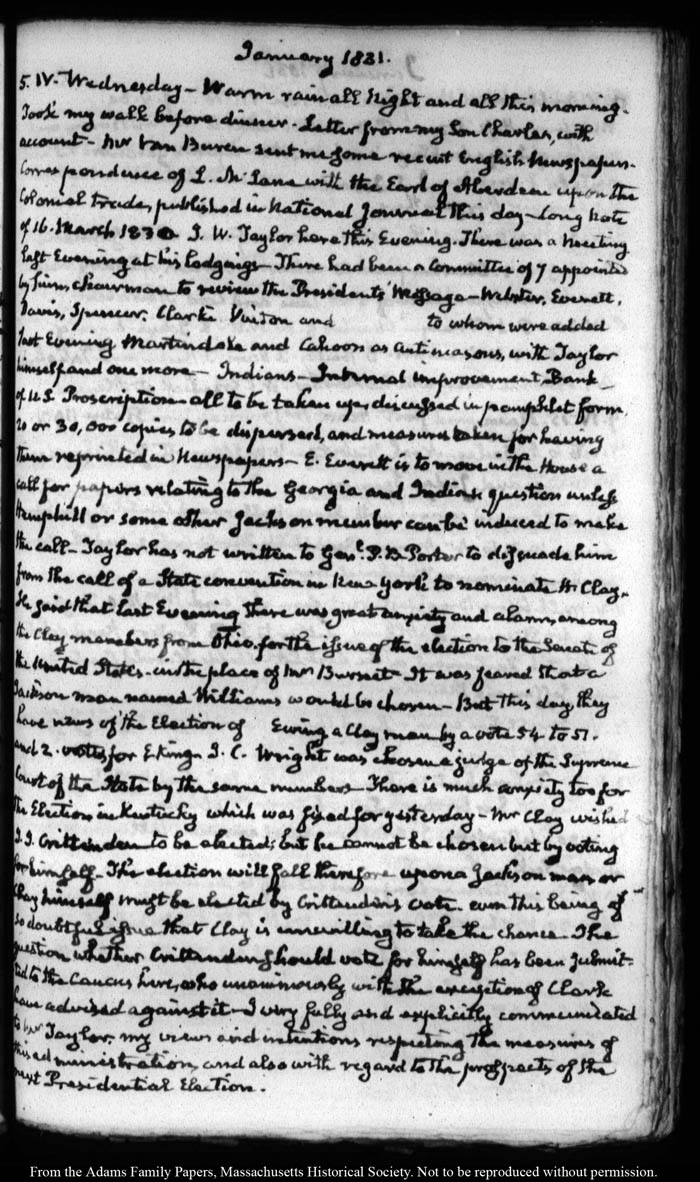 January 1831.
5. IV. Wednesday – Warm rain all Night and all this morning.
Took my walk before dinner. Letter from my Son Charles, with
account – Mr Van Buren sent me some recent English Newspapers.
Correspondence of L. McLane with the Earl of Aberdeen upon the
Colonial trade, published in National Journal this day – Long Note
of 16. March 1830 J. W. Taylor here this Evening. There was a Meeting
last Evening at his lodgings – There had been a Committee of 7 appointed
by chairman to review the Presidents' Message – Webster, Everett,
Davis, Spencer, Clarke Vinton and to whom were added
last Evening Martindale and Cahoon as antimasons, with Taylor
himself and one more – Indians – Internal improvement, Bank
of U.S. Proscription – all to be taken up, discussed in pamphlet form,
20 or 30,000 copies to be dispersed, and measures taken for having
them reprinted in Newspapers – E. Everett is to move in the House a
call for papers relating to the Georgia and Indians question unless
Hemphill or some other Jackson member can be induced to make
the call – Taylor has not written to Genl. P. B Porter to disswade him
from the call of a State convention in New York to nominate H. Clay.
He said that last Evening there was great anxiety and alarm among
the Clay members from Ohio, for the issue of the election to the Senate of
the United States – in the place of Mr Burnet – It was feared that a
Jackson man named Williams would be chosen – But this day they
have news of the Election of Ewing a Clay man by a vote 54 to 51.
and 2. votes for E King. J. C. Wright was chosen a judge of the Supreme
Court of the State by the same numbers – There is much anxiety too for
the Election in Kentucky which was fixed for yesterday – Mr Clay wished
J. J. Crittenden to be elected; but he cannot be chosen but by voting
for himself. The election will fall therefore upon a Jackson man or
Clay himself must be elected by Crittenden's vote. even this being of
so doubtful issue that Clay is unwilling to take the chance. The
question whether Crittenden should vote for himself has been submit-
ted to the Caucus here, who unanimously with the exception of Clark
have advised against it – I very fully and explicitly communicated
to Mr Taylor, my views and intentions respecting the measures of
this administration, and also with regard to the prospects of the
next Presidential Election.
From the Adams Family Papers, Massachusetts Historical Society. Not to be reproduced without permission.